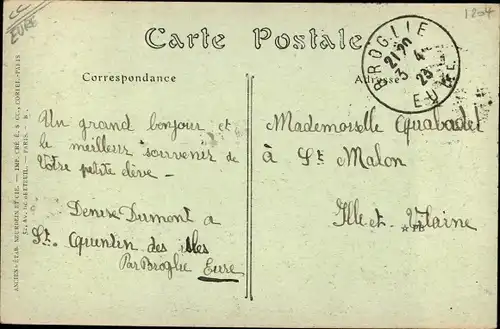 EURE
1204
Carte Postale
BROGLIE
21 20
3 4
23
EURE
Correspondance
Adresse
Un grand bonjour et
le meilleur souvenir de
Votre petite élève.
Denise Dumont a
St. Quentin des isles
Par Broglie Eure
Mademoiselle
à St Malon
Ille-et-Vilaine
ANCIENS ÉTAB. NEURDEIN ET CIE. — IMP. CRÉTÉ, SUCC., CORBEIL-PARIS